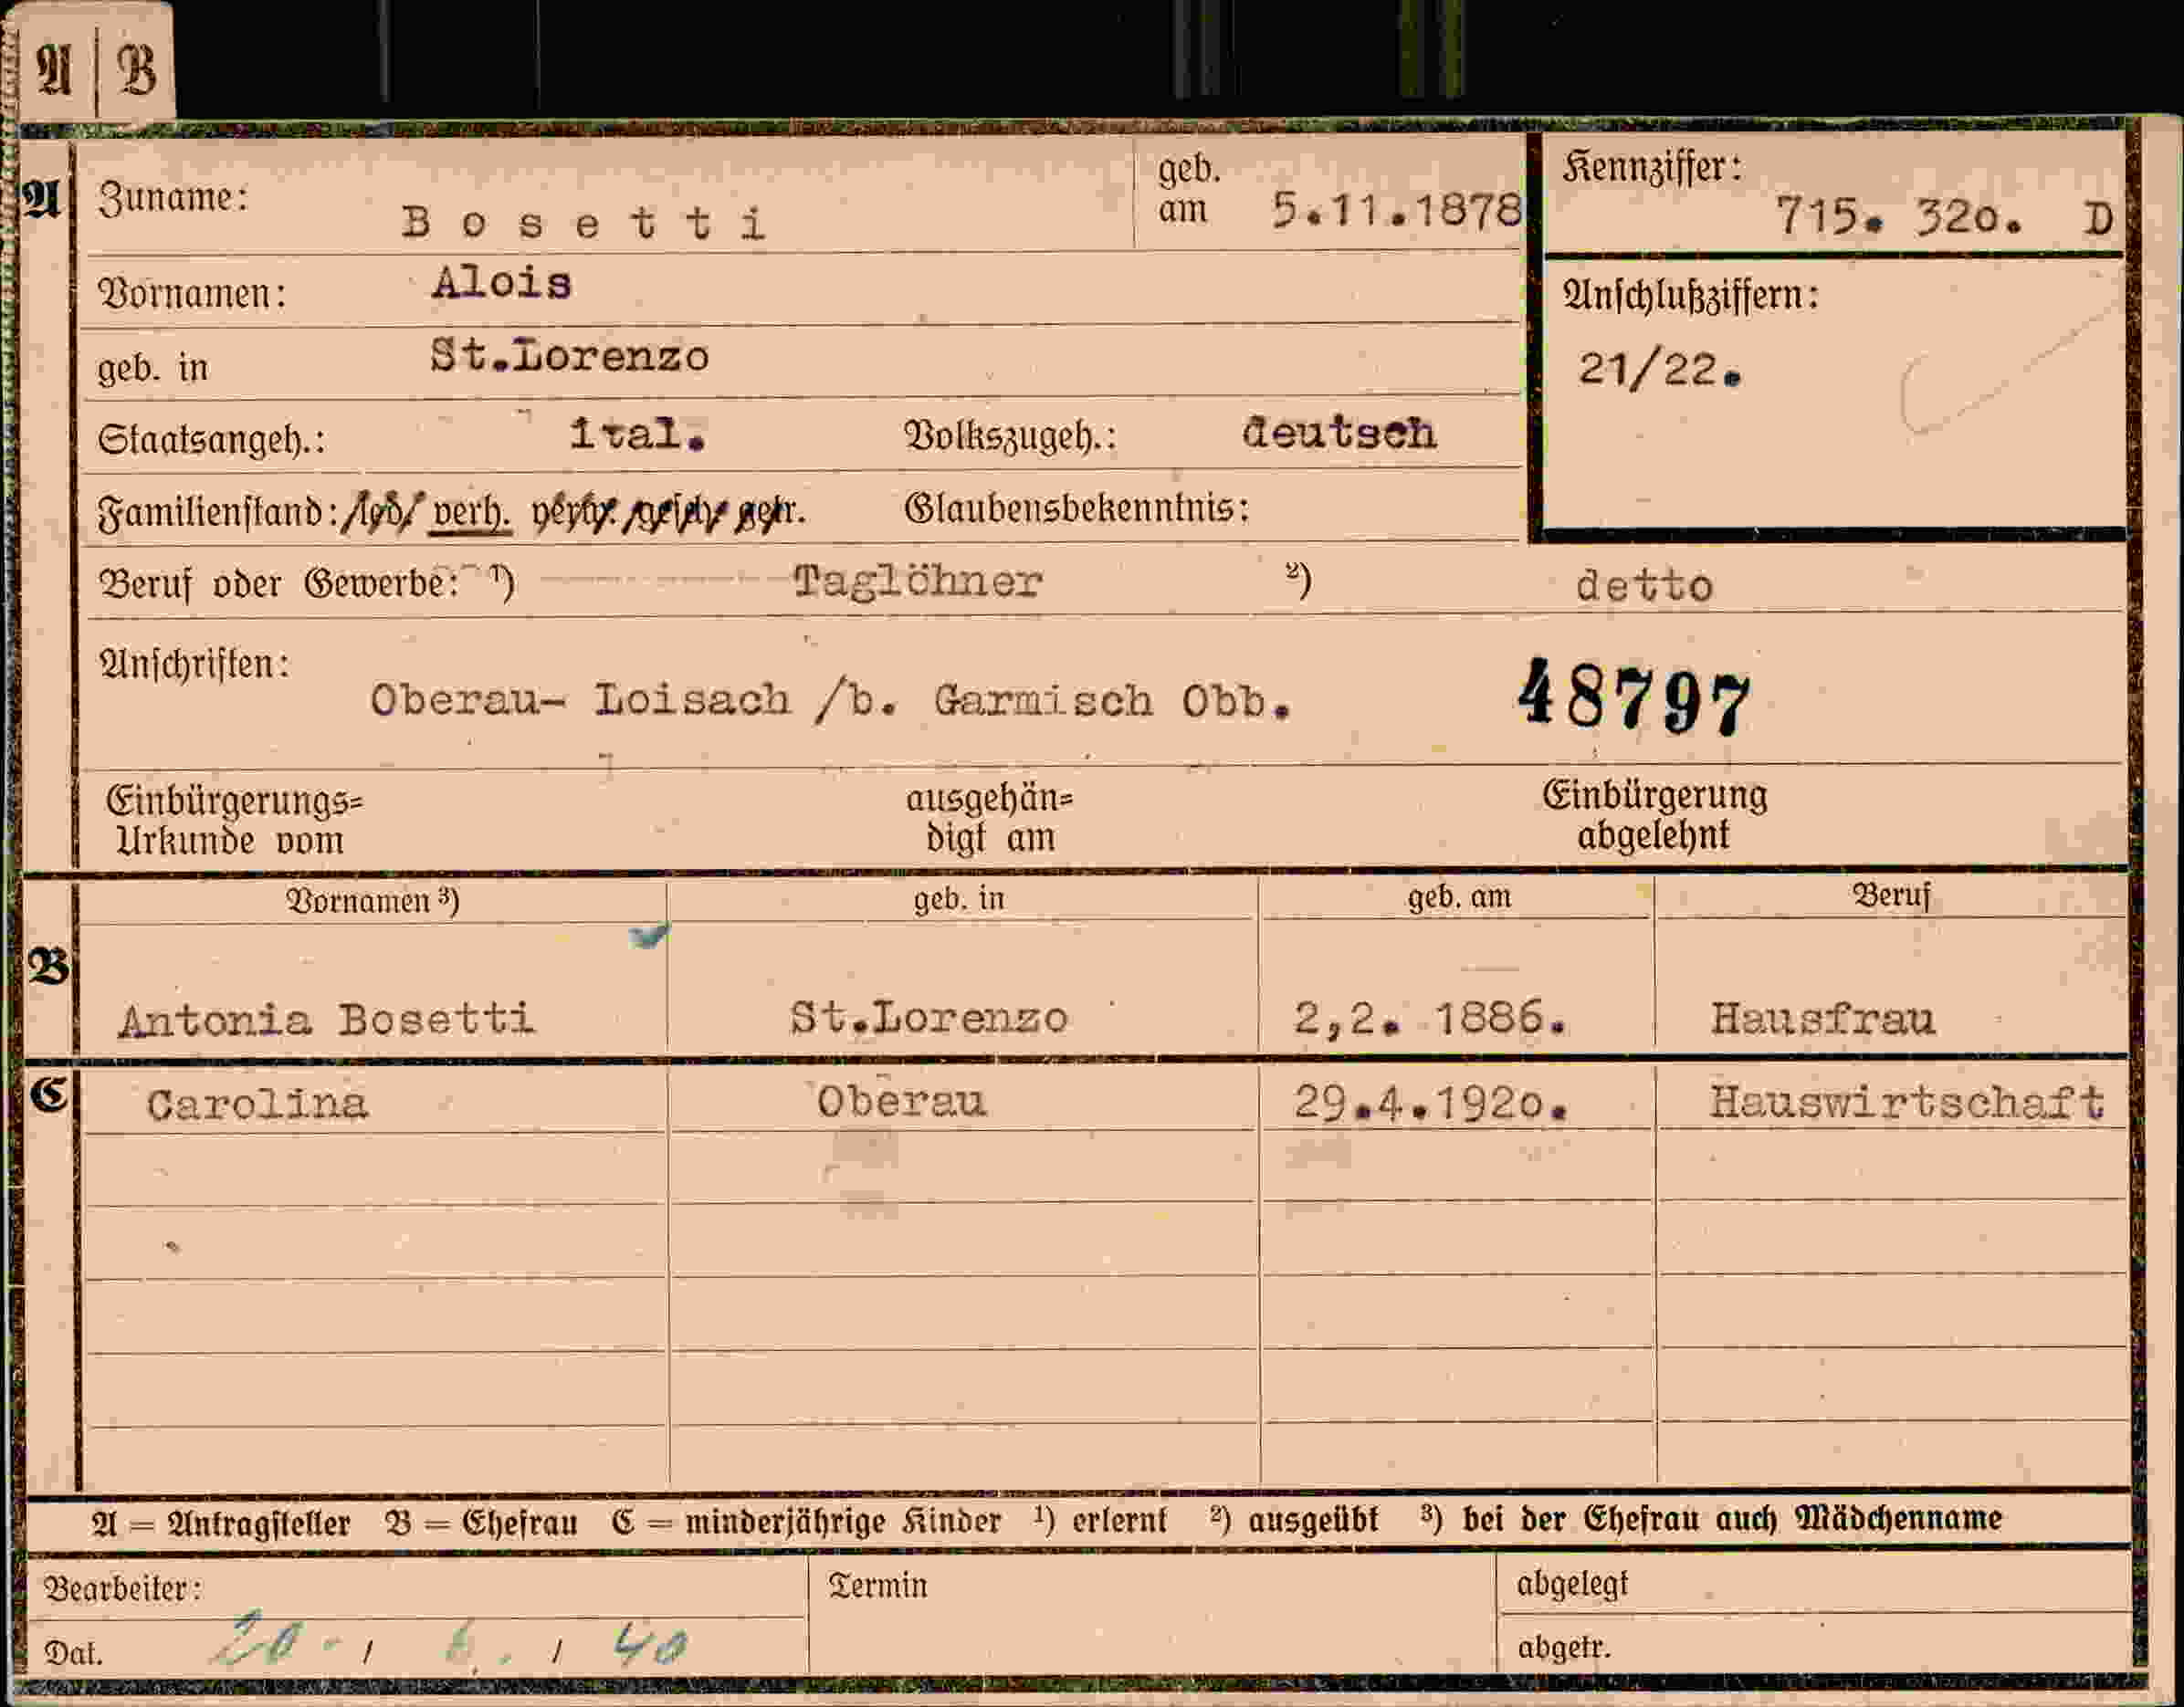 A | B
A
Zuname: Bosetti geb. am 5.11.1878
Kennziffer: 715. 320. D
Vornamen: Alois
geb. in St.Lorenzo
Anschlußziffern: 21/22.
Staatsangeh.: ital. Volkszugeh.: deutsch
Familienstand: led. verh. verw. gesch. getr. Glaubensbekenntnis:
Beruf oder Gewerbe: 1) Taglöhner 2) detto
Anschriften: Oberau- Loisach /b. Garmisch Obb. 48797
Einbürgerungs=Urkunde vom ausgehän=digt am Einbürgerung abgelehnt
B
Vornamen 3) geb. in geb. am Beruf
Antonia Bosetti St.Lorenzo 2,2. 1886. Hausfrau
C
Carolina Oberau 29.4.1920. Hauswirtschaft
A = Antragsteller B = Ehefrau C = minderjährige Kinder 1) erlernt 2) ausgeübt 3) bei der Ehefrau auch Mädchenname
Bearbeiter: Termin abgelegt
Dat. 20. / 6. / 40 abgetr.